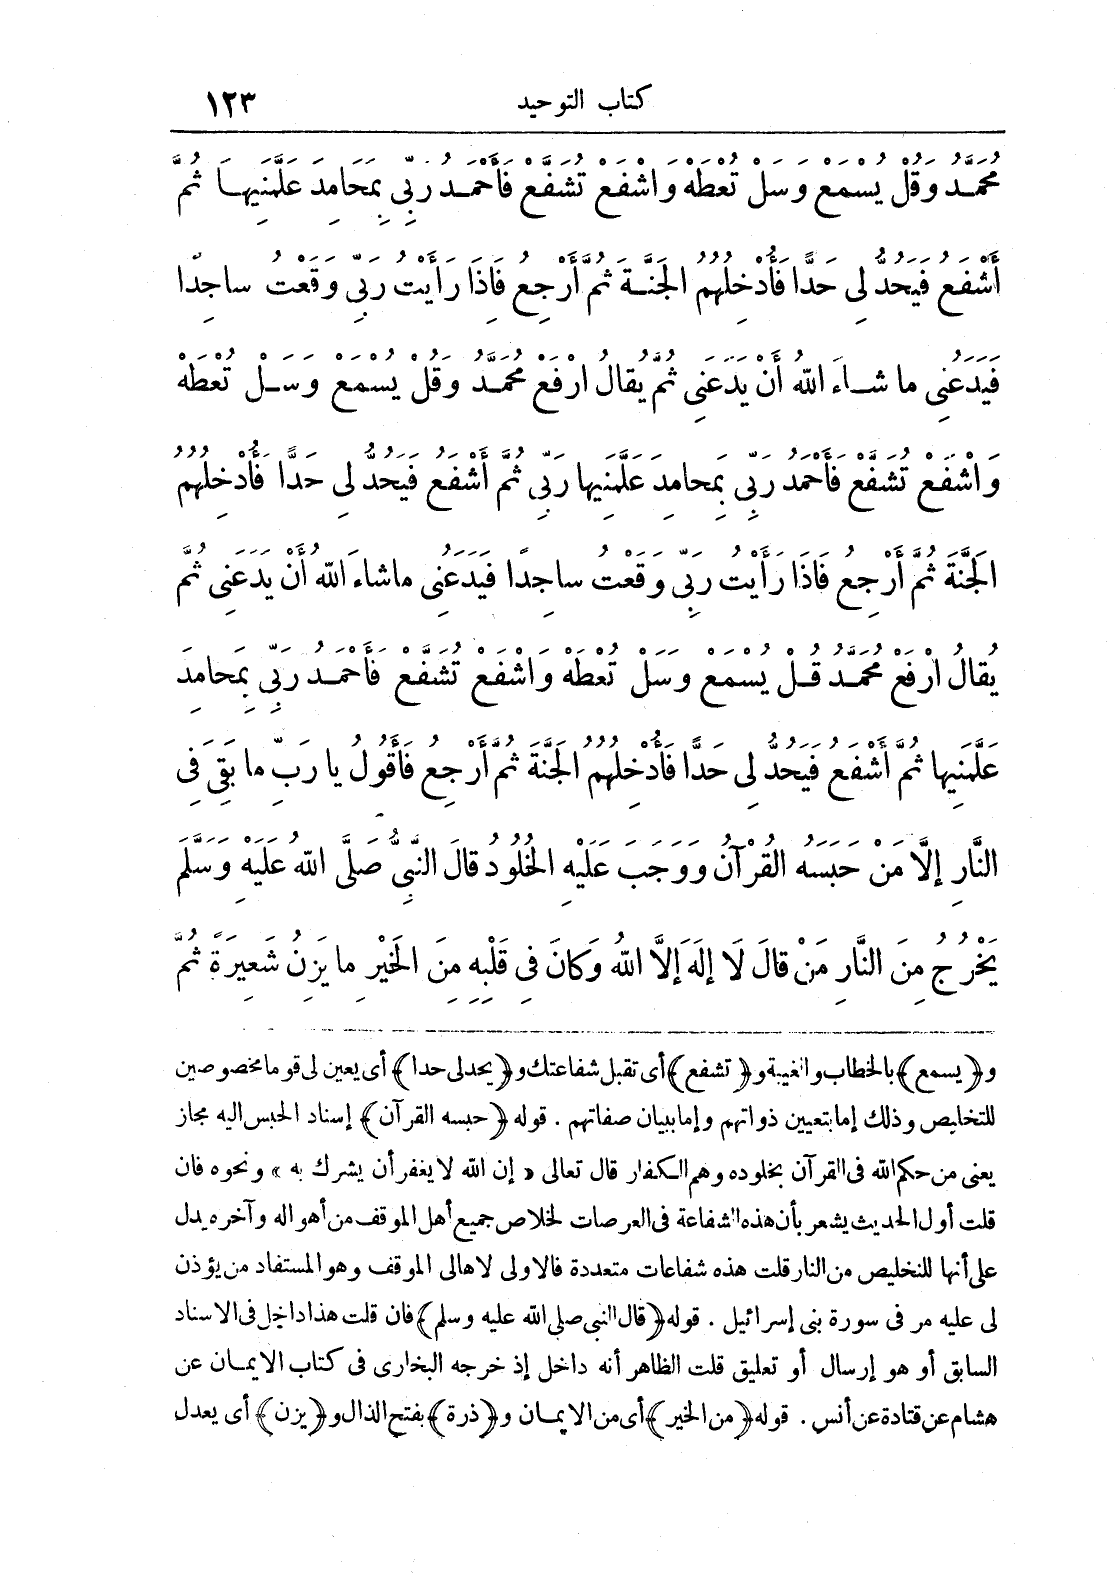 كتاب التوحيد ١٢٣
مُحَمَّدُ وَقُلْ يُسْمَعْ وَسَلْ تُعْطَهْ وَاشْفَعْ تُشَفَّعْ فَأَحْمَدُ رَبِّى بِمَحَامِدَ عَلَّمَنِيهَا ثُمَّ
أَشْفَعُ فَيَحُدُّ لِى حَدًّا فَأُدْخِلُهُمُ الْجَنَّةَ ثُمَّ أَرْجِعُ فَإِذَا رَأَيْتُ رَبِّى وَقَعْتُ سَاجِدًا
فَيَدَعُنِى مَا شَاءَ اللَّهُ أَنْ يَدَعَنِى ثُمَّ يُقَالُ ارْفَعْ مُحَمَّدُ وَقُلْ يُسْمَعْ وَسَلْ تُعْطَهْ
وَاشْفَعْ تُشَفَّعْ فَأَحْمَدُ رَبِّى بِمَحَامِدَ عَلَّمَنِيهَا رَبِّى ثُمَّ أَشْفَعُ فَيَحُدُّ لِى حَدًّا فَأُدْخِلُهُمُ
الْجَنَّةَ ثُمَّ أَرْجِعُ فَإِذَا رَأَيْتُ رَبِّى وَقَعْتُ سَاجِدًا فَيَدَعُنِى مَاشَاءَ اللَّهُ أَنْ يَدَعَنِى ثُمَّ
يُقَالُ ارْفَعْ مُحَمَّدُ قُلْ يُسْمَعْ وَسَلْ تُعْطَهْ وَاشْفَعْ تُشَفَّعْ فَأَحْمَدُ رَبِّى بِمَحَامِدَ
عَلَّمَنِيهَا ثُمَّ أَشْفَعُ فَيَحُدُّ لِى حَدًّا فَأُدْخِلُهُمُ الْجَنَّةَ ثُمَّ أَرْجِعُ فَأَقُولُ يَا رَبِّ مَا بَقِىَ فِى
النَّارِ إِلَّا مَنْ حَبَسَهُ الْقُرْآنُ وَوَجَبَ عَلَيْهِ الْخُلُودُ قَالَ النَّبِىُّ صَلَّى اللَّهُ عَلَيْهِ وَسَلَّمَ
يَخْرُجُ مِنَ النَّارِ مَنْ قَالَ لَا إِلَهَ إِلَّا اللَّهُ وَكَانَ فِى قَلْبِهِ مِنَ الْخَيْرِ مَا يَزِنُ شَعِيرَةً ثُمَّ
و﴿يسمع﴾ بالخطاب والغيبة و﴿تشفع﴾ أى تقبل شفاعتك و﴿يحدلى حدا﴾ أى يعين لى قوما مخصوصين
للتخليص وذلك إما بتعيين ذواتهم وإما ببيان صفاتهم . قوله ﴿حبسه القرآن﴾ إسناد الحبس اليه مجاز
يعنى من حكم الله فى القرآن بخلوده وهم الكفار قال تعالى «إن الله لا يغفر أن يشرك به» ونحوه فان
قلت أول الحديث يشعر بأن هذه الشفاعة فى العرصات لخلاص جميع أهل الموقف من أهواله وآخره يدل
على أنها للتخليص من النار قلت هذه شفاعات متعددة فالاولى لاهالى الموقف وهو المستفاد من يؤذن
لى عليه مر فى سورة بنى إسرائيل . قوله ﴿قال النبى صلى الله عليه وسلم﴾ فان قلت هذا داخل فى الاسناد
السابق أو هو إرسال أو تعليق قلت الظاهر أنه داخل إذ خرجه البخارى فى كتاب الايمان عن
هشام عن قتادة عن أنس . قوله ﴿من الخير﴾ أى من الايمان و﴿ذرة﴾ بفتح الذال و﴿يزن﴾ أى يعدل